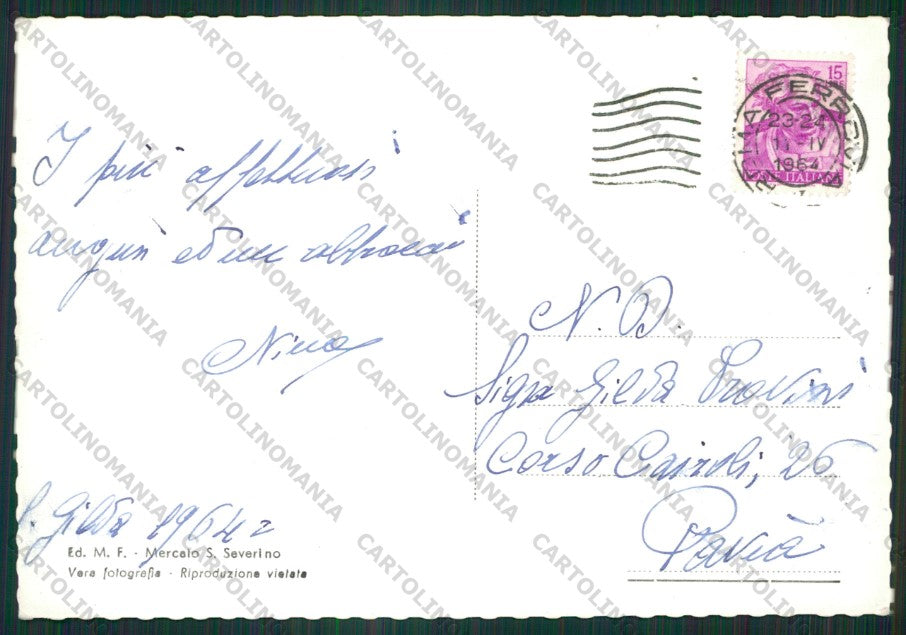 I più affettuosi
auguri ed un abbraccio
Nina
S. Gilda 1964
Ed. M. F. - Mercato S. Severino
Vera fotografia - Riproduzione vietata
15
POSTE ITALIANE
FERROVIA
23-24
11 IV
1964
N. D.
Sigra Gilda
Corso Cairoli, 26
Pavia
CARTOLINOMANIA